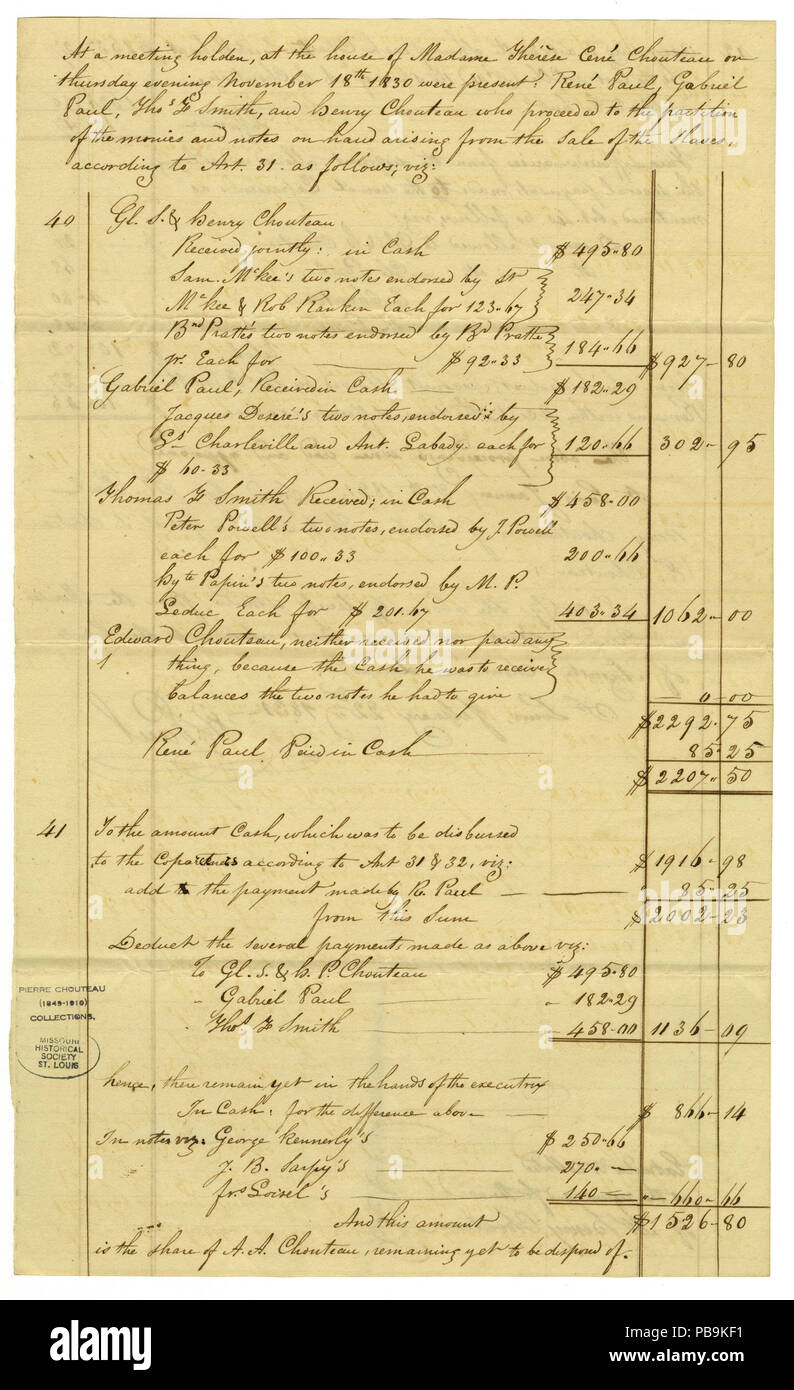 At a meeting holden, at the house of Madame Thérèse Cerré Chouteau on
thursday evening November 18th 1830 were present: René Paul, Gabriel
Paul, Thos F Smith, and henry Chouteau who proceeded to the partition
of the monies and notes on hand arising from the sale of the slaves,
according to Art. 31. as follows; viz:
40 Gl. S. & henry Chouteau
Received jointly: in Cash $495.80
Sam. McKee's two notes endorsed by
McKee & Rob Rankin Each for 123.67 247.34
Bnd Pratte's two notes endorsed by Bd Pratte
jr. Each for $92.33 184.66 $927-80
Gabriel Paul, Received in Cash $182.29
Jacques Deseré's two notes, endorsed by
Ls Charleville and Ant. Labady each for 120.66 302-95
$ 60-33
Thomas F Smith Received; in Cash $458-00
Peter Powell's two notes, endorsed by J. Powell
each for $100.33 200.66
hyte Papin's two notes, endorsed by M. P.
Leduc Each for $201.67 403.34 1062-00
Edward Chouteau, neither received nor paid any
1 thing, because the Cash he was to receive
balances the two notes he had to give - 0-00
$2292-75
René Paul, Paid in Cash 85-25
$2207.50
41 To the amount Cash, which was to be disbursed
to the Copartners according to Art 31 & 32, viz: $1916-98
add to the payment made by R. Paul 85-25
from this Sum $2002-23
Deduct the several payment made as above viz:
To Gl. S. & h. P. Chouteau $495.80
- Gabriel Paul 182.29
- Thos F Smith 458-00 1136-09
hence, there remain yet in the hands of the executrix
In Cash: for the difference above $ 866-14
In notes viz: George Kennerly's $250.66
J. B. Sarpy's 270.-
frs Loisel's 140- 660.66
And this amount $1526-80
is the share of A. A. Chouteau, remaining yet to be dispond of.
PIERRE CHOUTEAU
(1849-1910)
COLLECTIONS.
MISSOURI
HISTORICAL
SOCIETY
ST. LOUIS
alamy
Image ID: PB9KF1
www.alamy.com